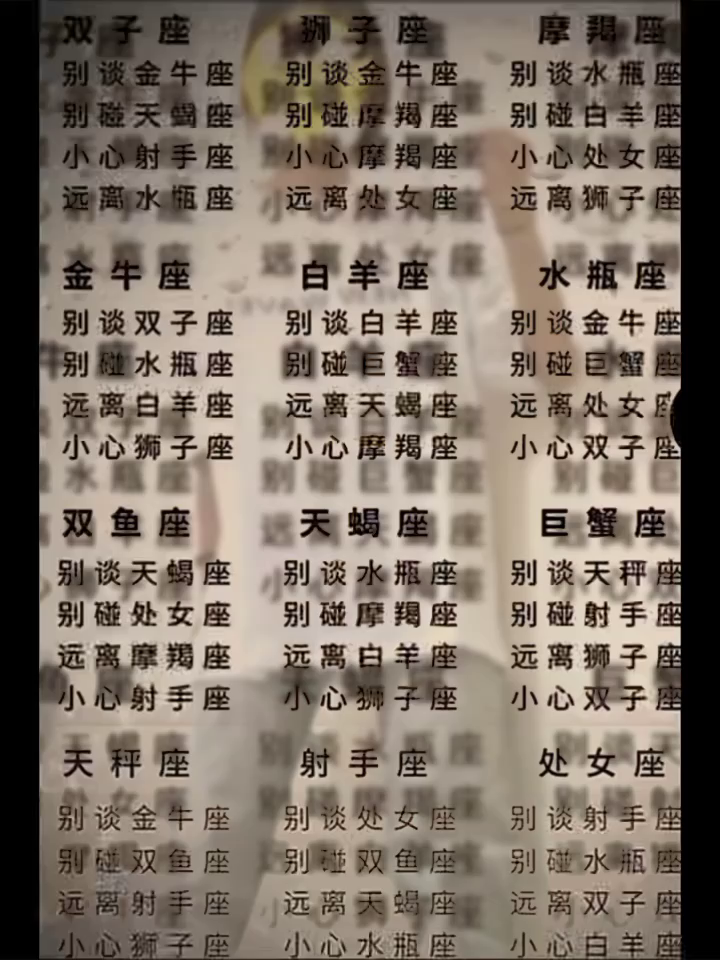 双子座
别谈金牛座
别碰天蝎座
小心射手座
远离水瓶座
狮子座
别谈金牛座
别碰摩羯座
小心摩羯座
远离处女座
摩羯座
别谈水瓶座
别碰白羊座
小心处女座
远离狮子座
金牛座
别谈双子座
别碰水瓶座
远离白羊座
小心狮子座
白羊座
别谈白羊座
别碰巨蟹座
远离天蝎座
小心摩羯座
水瓶座
别谈金牛座
别碰巨蟹座
远离处女座
小心双子座
双鱼座
别谈天蝎座
别碰处女座
远离摩羯座
小心射手座
天蝎座
别谈水瓶座
别碰摩羯座
远离白羊座
小心狮子座
巨蟹座
别谈天秤座
别碰射手座
远离狮子座
小心双子座
天秤座
别谈金牛座
别碰双鱼座
远离射手座
小心狮子座
射手座
别谈处女座
别碰双鱼座
远离天蝎座
小心水瓶座
处女座
别谈射手座
别碰水瓶座
远离双子座
小心白羊座